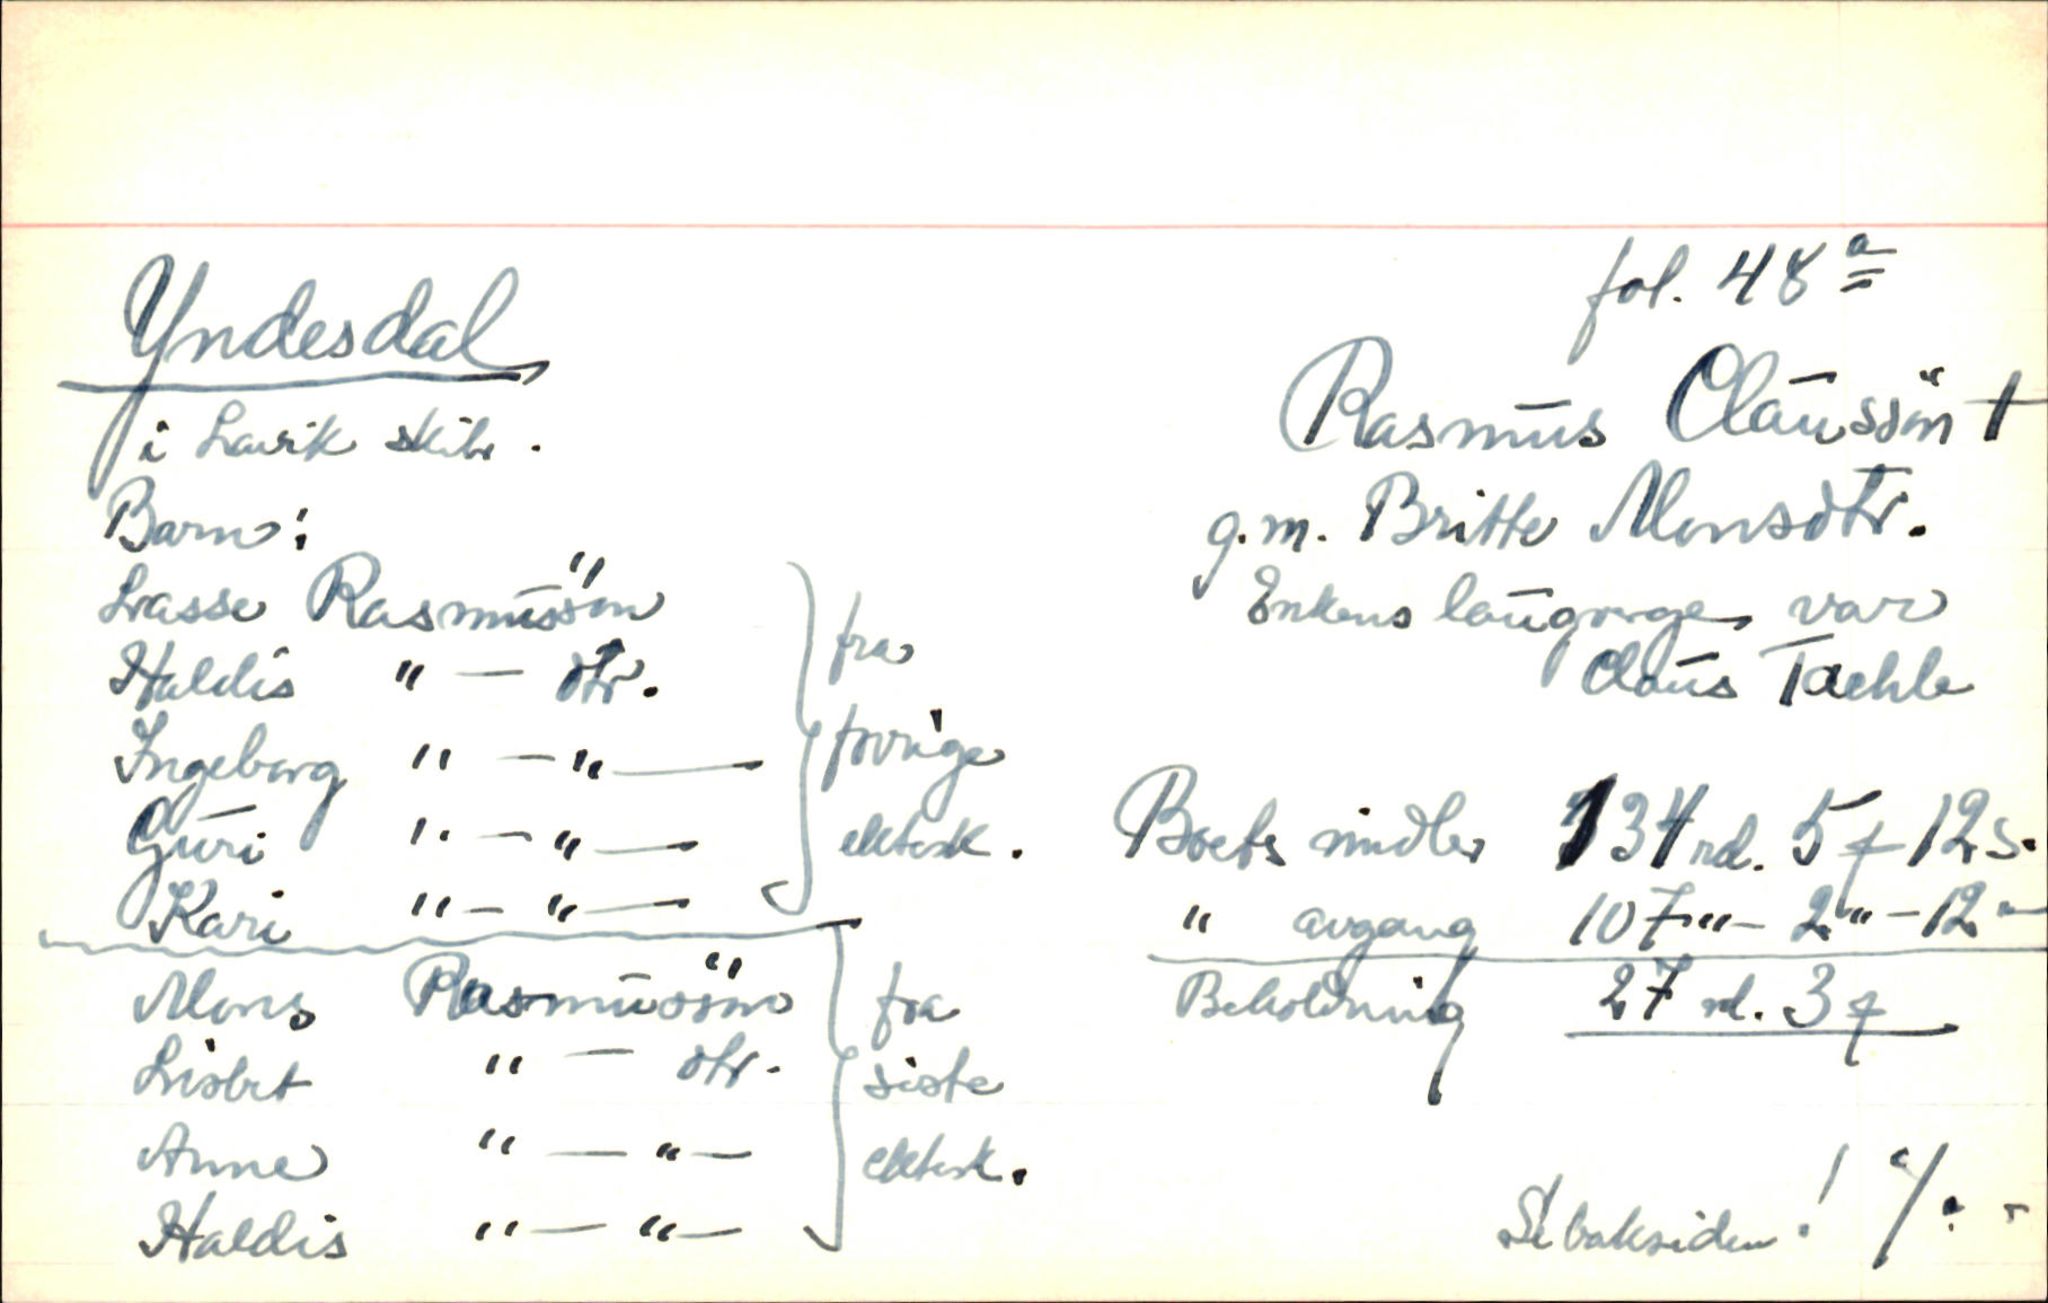 fol. 48 a
Yndesdal
i Lavik skibr.
Barn:
Lasse Rasmussön
Haldis " — dtr.
Ingeborg " — " —
Guri " — " —
Kari " — " —
fra
forrige
ektesk.
Mons Rasmussön
Lisbet " — dtr.
Anne " — " —
Haldis " — " —
fra
siste
ektesk.
Rasmus Claussön †
g.m. Britte Monsdtr.
Enkens laugverge var
Claus Tæhle
Boets midler 134 rd. 5 ƒ 12 s.
" avgang 107 " — 2 " — 12 "
Beholdning 27 rd. 3 ƒ
Se baksiden! ./.